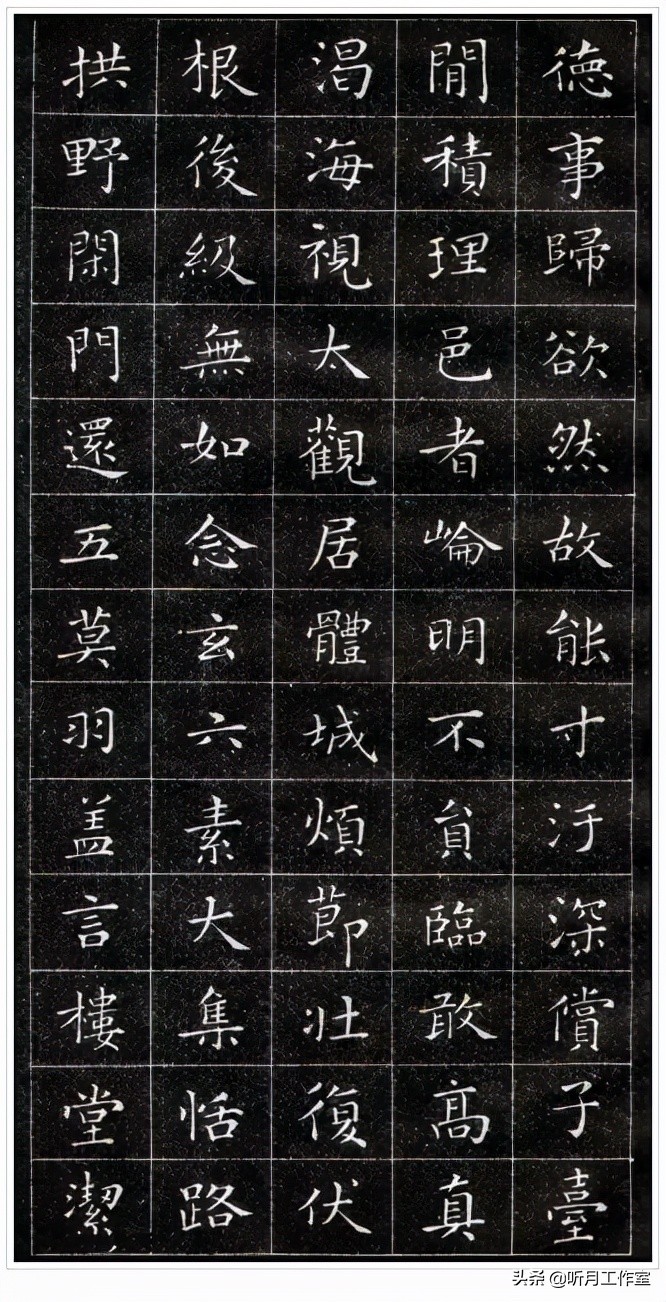 徳事歸欲然故能寸汙深償子臺
閒積理邑者崘明不貟臨敢髙真
渴海視太觀居體城煩莭壯復伏
根後級無如念玄六素大集恬路
拱野閑門還五莫羽盖言樓堂潔
头条 @听月工作室